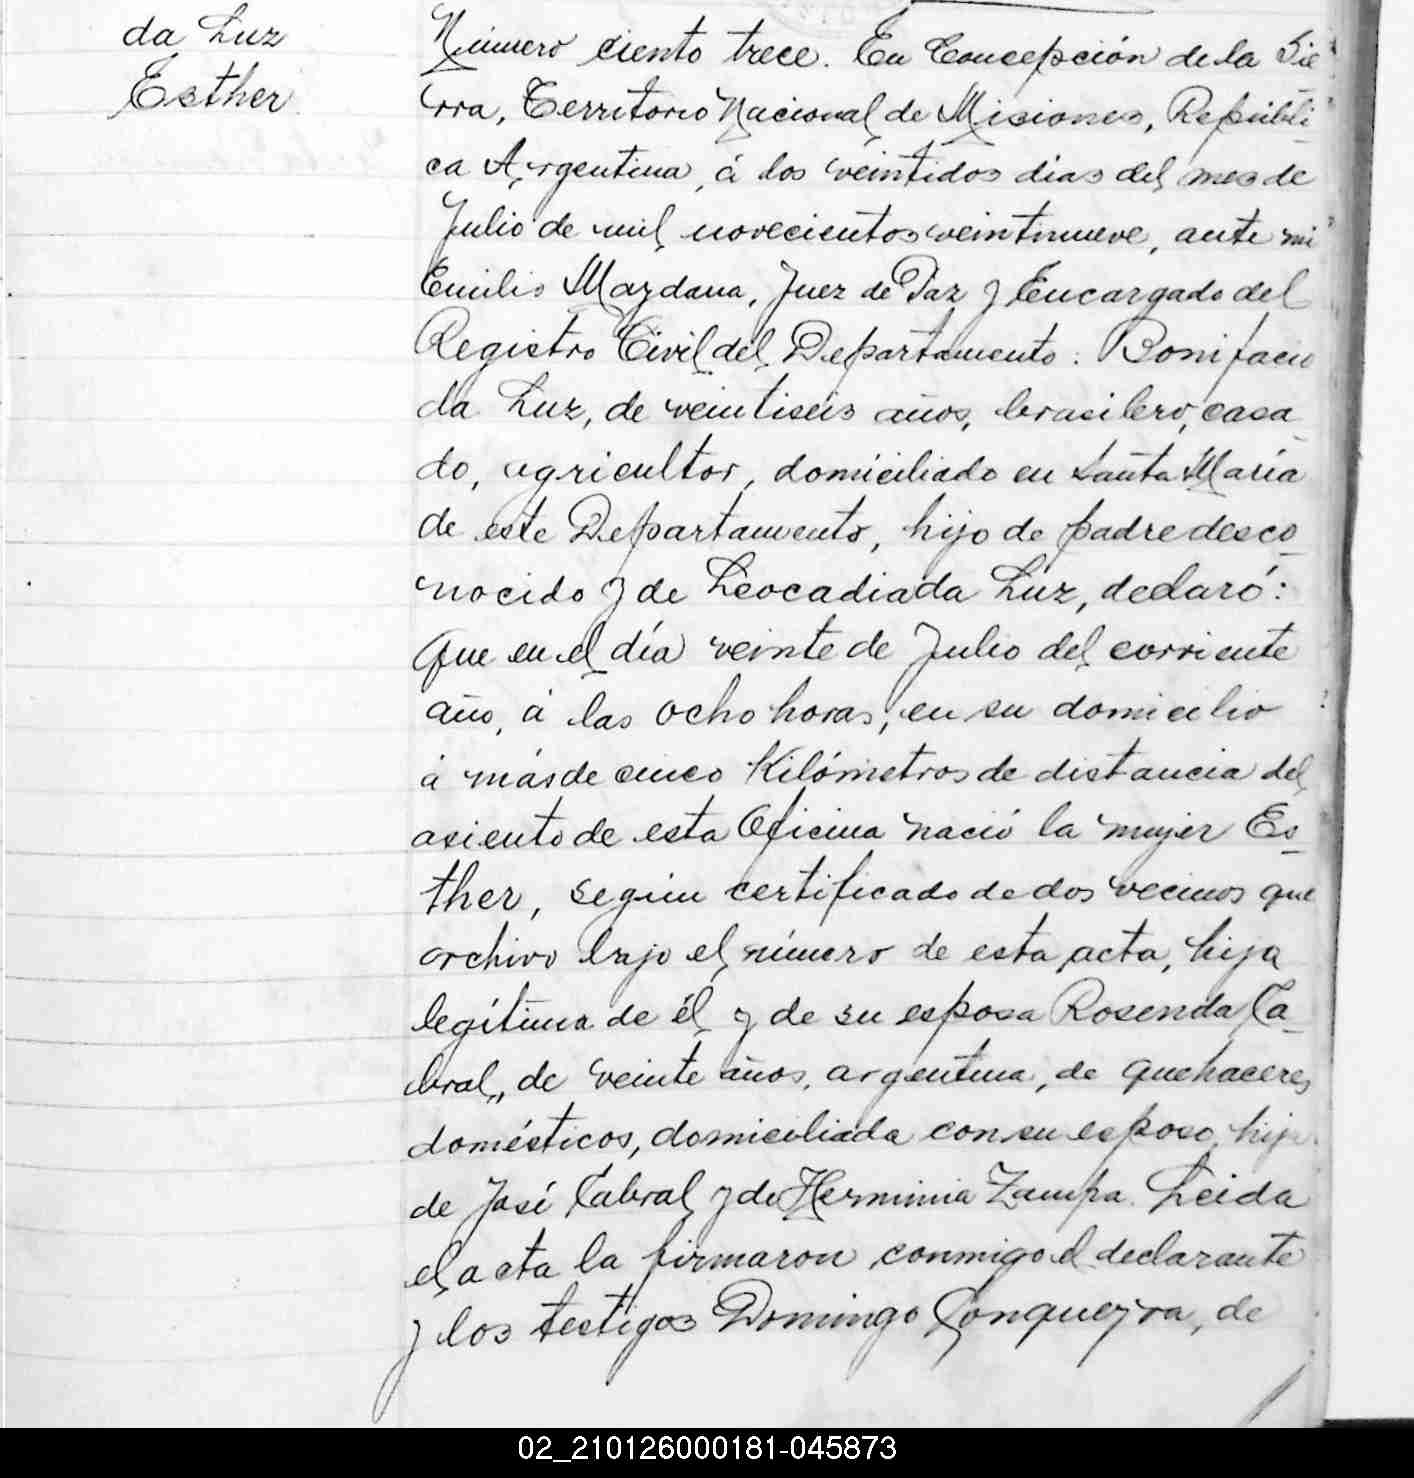 da Luz
Esther
Número ciento trece. En Concepción de la Sie
rra, Territorio Nacional de Misiones, Repúbli
ca Argentina, á los veintidos dias del mes de
Julio de mil novecientos veintinueve, ante mi
Emilio Maydana, Juez de Paz y Encargado del
Registro Civil del Departamento: Bonifacio
da Luz, de veintiseis años, brasilero, casa
do, agricultor, domiciliado en Santa María
de este Departamento, hijo de padre desco
nocido y de Leocadia da Luz, declaró:
Que en el día veinte de Julio del corriente
año, á las ocho horas, en su domicilio
á más de cinco Kilómetros de distancia del
asiento de esta Oficina nació la mujer Es
ther, según certificado de dos vecinos que
archivo bajo el número de esta acta, hija
legítima de él y de su esposa Rosenda Ca
bral, de veinte años, argentina, de quehaceres
domésticos, domiciliada con su esposo, hija
de José Cabral y de Herminia Zampa. Leida
el acta la firmaron conmigo el declarante
y los testigos Domingo Conqueyra, de
02_210126000181-045873